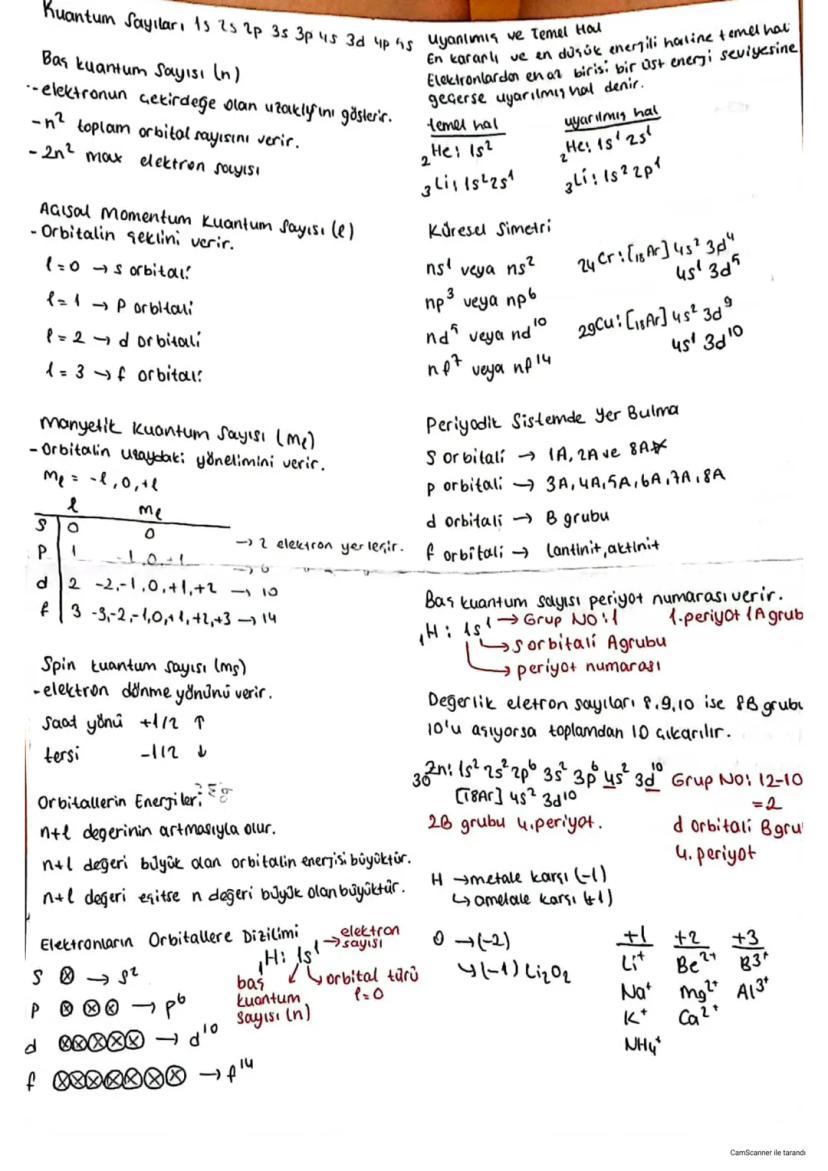 Kuantum Sayıları 1s 2s 2p 3s 3p 4s 3d 4p 5s
Baş kuantum Sayısı (n)
- elektronun çekirdeğe olan uzaklığını gösterir.
- n² toplam orbital sayısını verir.
- 2n² max elektron sayısı
Açısal Momentum Kuantum Sayısı (l)
- Orbitalin şeklini verir.
l=0 → s orbitali
l=1 → p orbitali
l=2 → d orbitali
l=3 → f orbitali
Manyetik Kuantum Sayısı (ml)
- Orbitalin uzaydaki yönelimini verir.
ml = -l, 0, +l
l ml
s 0 0 → 2 elektron yerleşir.
p 1 -1,0,+1 → 6
d 2 -2,-1,0,+1,+2 → 10
f 3 -3,-2,-1,0,+1,+2,+3 → 14
Spin kuantum sayısı (ms)
- elektron dönme yönünü verir.
Saat yönü +1/2 ↑
tersi -1/2 ↓
Orbitallerin Enerjileri
n+l değerinin artmasıyla olur.
n+l değeri büyük olan orbitalin enerjisi büyüktür.
n+l değeri eşitse n değeri büyük olan büyüktür.
Elektronların Orbitallere Dizilimi
₁H: 1s¹ → elektron sayısı
baş kuantum sayısı (n)
orbital türü l=0
s ⊗ → s²
p ⊗⊗⊗ → p⁶
d ⊗⊗⊗⊗⊗ → d¹⁰
f ⊗⊗⊗⊗⊗⊗⊗ → f¹⁴
Uyarılmış ve Temel Hal
En kararlı ve en düşük enerjili haline temel hal
Elektronlardan en az birisi bir üst enerji seviyesine
geçerse uyarılmış hal denir.
temel hal uyarılmış hal
₂He: 1s² ₂He: 1s¹ 2s¹
₃Li: 1s² 2s¹ ₃Li: 1s² 2p¹
Küresel Simetri
ns¹ veya ns²
np³ veya np⁶
nd⁵ veya nd¹⁰
nf⁷ veya nf¹⁴
₂₄Cr: [₁₈Ar] 4s² 3d⁴
4s¹ 3d⁵
₂₉Cu: [₁₈Ar] 4s² 3d⁹
4s¹ 3d¹⁰
Periyodik Sistemde Yer Bulma
S orbitali → 1A, 2A ve 8A
p orbitali → 3A, 4A, 5A, 6A, 7A, 8A
d orbitali → B grubu
f orbitali → lantinit, aktinit
Baş kuantum sayısı periyot numarası verir.
₁H: 1s¹ → Grup No: 1 1.periyot 1A grub
→ s orbitali A grubu
→ periyot numarası
Değerlik eletron sayıları 8,9,10 ise 8B grubu
10'u aşıyorsa toplamdan 10 çıkarılır.
₃₀Zn: 1s² 2s² 2p⁶ 3s² 3p⁶ 4s² 3d¹⁰ Grup No: 12-10
=2
[18Ar] 4s² 3d¹⁰
2B grubu 4.periyot. d orbitali B gru
4. periyot
H → metale karşı (-1)
↳ ametale karşı (+1)
O → (-2)
↳ (-1) Li₂O₂
+1 +2 +3
Li⁺ Be²⁺ B³⁺
Na⁺ Mg²⁺ Al³⁺
K⁺ Ca²⁺
NH₄⁺
CamScanner ile tarandı